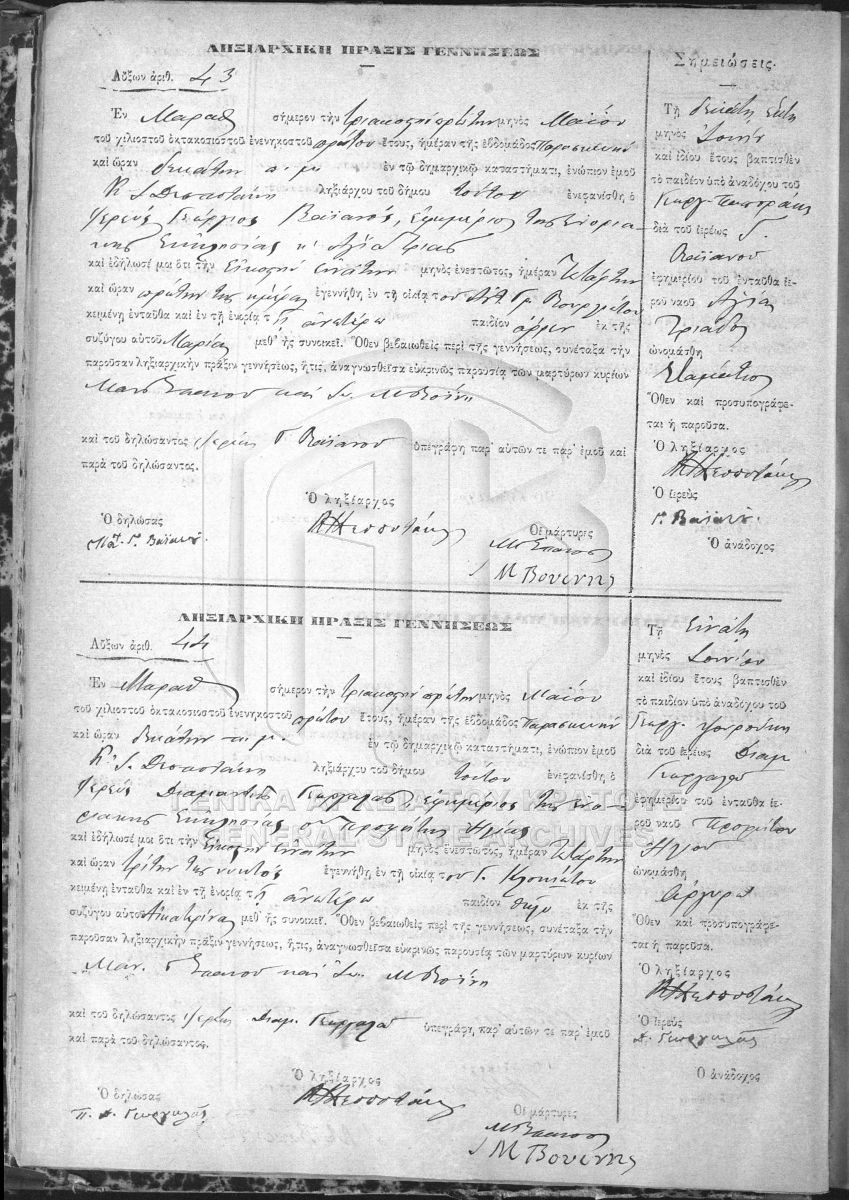 ΛΗΞΙΑΡΧΙΚΗ ΠΡΑΞΙΣ ΓΕΝΝΗΣΕΩΣ
Αὔξων ἀριθ. 43
Ἐν Μαραθ σήμερον τὴν τριακοστὴν πρώτην μηνὸς Μαΐου
τοῦ χιλιοστοῦ ὀκτακοσιοστοῦ ἐνενηκοστοῦ πρώτου ἔτους, ἡμέραν τῆς ἑβδομάδος Παρασκευήν
καὶ ὥραν δεκάτην π.μ. ἐν τῷ δημαρχικῷ καταστήματι, ἐνώπιον ἐμοῦ
ληξιάρχου τοῦ δήμου τούτου ἐνεφανίσθη ὁ
ἱερεὺς Γεώργιος Βαϊανός, ἐφημέριος τῆς ἐνορια-
κῆς Ἐκκλησίας ἡ Ἁγία Τριάς
καὶ ἐδήλωσέ μοι ὅτι τὴν εἰκοστὴν ἐνάτην μηνὸς ἐνεστῶτος, ἡμέραν Τετάρτην
καὶ ὥραν πρώτην τῆς ἡμέρας ἐγεννήθη ἐν τῇ οἰκίᾳ του
κειμένῃ ἐνταῦθα καὶ ἐν τῇ ἐνορίᾳ τῇ ἀνωτέρω παιδίον ἄρρεν ἐκ τῆς
συζύγου αὐτοῦ Μαρίας μεθ' ἧς συνοικεῖ. Ὅθεν βεβαιωθεὶς περὶ τῆς γεννήσεως, συνέταξα τὴν
παροῦσαν ληξιαρχικὴν πρᾶξιν γεννήσεως, ἥτις, ἀναγνωσθεῖσα εὐκρινῶς παρουσίᾳ τῶν μαρτύρων κυρίων
καὶ
καὶ τοῦ δηλώσαντος ἱερέως Γ. Βαϊανοῦ ὑπεγράφη παρ' αὐτῶν τε παρ' ἐμοῦ καὶ
παρὰ τοῦ δηλώσαντος.
Ὁ δηλώσας
Γ. Βαϊανός
Ὁ ληξίαρχος
Οἱ μάρτυρες
Σημειώσεις.
Τῇ δεκάτῃ ἕκτῃ
μηνὸς Ἰουν
καὶ ἰδίου ἔτους βαπτισθὲν
τὸ παιδίον ὑπὸ ἀναδόχου τοῦ
Γεωργ.
διὰ τοῦ ἱερέως Γ.
Βαϊανοῦ
ἐφημερίου τοῦ ἐνταῦθα ἱε-
ροῦ ναοῦ Ἁγία
Τριάδος
ὠνομάσθη
Σταμάτιος
Ὅθεν καὶ προσυπογράφε-
ται ἡ παροῦσα.
Ὁ ληξίαρχος
Ὁ ἱερεὺς
Γ. Βαϊανός
Ὁ ἀνάδοχος
ΛΗΞΙΑΡΧΙΚΗ ΠΡΑΞΙΣ ΓΕΝΝΗΣΕΩΣ
Αὔξων ἀριθ. 44
Ἐν Μαραθ σήμερον τὴν τριακοστὴν πρώτην μηνὸς Μαΐου
τοῦ χιλιοστοῦ ὀκτακοσιοστοῦ ἐνενηκοστοῦ πρώτου ἔτους, ἡμέραν τῆς ἑβδομάδος Παρασκευήν
καὶ ὥραν δεκάτην π.μ. ἐν τῷ δημαρχικῷ καταστήματι, ἐνώπιον ἐμοῦ
ληξιάρχου τοῦ δήμου τούτου ἐνεφανίσθη ὁ
ἱερεὺς Διαμαντῆς Γεωργαλᾶς, ἐφημέριος τῆς ἐνο-
ριακῆς Ἐκκλησίας ὁ Προφήτης Ἠλίας
καὶ ἐδήλωσέ μοι ὅτι τὴν εἰκοστὴν ἐνάτην μηνὸς ἐνεστῶτος, ἡμέραν Τετάρτην
καὶ ὥραν τρίτην τῆς νυκτός ἐγεννήθη ἐν τῇ οἰκίᾳ του Γ.
κειμένῃ ἐνταῦθα καὶ ἐν τῇ ἐνορίᾳ τῇ ἀνωτέρω παιδίον θῆλυ ἐκ τῆς
συζύγου αὐτοῦ Αἰκατερίνας μεθ' ἧς συνοικεῖ. Ὅθεν βεβαιωθεὶς περὶ τῆς γεννήσεως, συνέταξα τὴν
παροῦσαν ληξιαρχικὴν πρᾶξιν γεννήσεως, ἥτις, ἀναγνωσθεῖσα εὐκρινῶς παρουσίᾳ τῶν μαρτύρων κυρίων
Μαν. καὶ
καὶ τοῦ δηλώσαντος ἱερέως Διαμ. Γεωργαλᾶ ὑπεγράφη παρ' αὐτῶν τε παρ' ἐμοῦ
καὶ παρὰ τοῦ δηλώσαντος.
Ὁ δηλώσας
Π. Δ. Γεωργαλᾶς
Ὁ ληξίαρχος
Οἱ μάρτυρες
Τῇ Ἐνάτῃ
μηνὸς Ἰουνίου
καὶ ἰδίου ἔτους βαπτισθὲν
τὸ παιδίον ὑπὸ ἀναδόχου τοῦ
Γεωργ.
διὰ τοῦ ἱερέως Διαμ
Γεωργαλᾶ
ἐφημερίου τοῦ ἐνταῦθα ἱε-
ροῦ ναοῦ Προφήτου
Ἠλιοῦ
ὠνομάσθη
Ἀργυρώ
Ὅθεν καὶ προσυπογράφε-
ται ἡ παροῦσα.
Ὁ ληξίαρχος
Ὁ ἱερεὺς
Δ. Γεωργαλᾶς
Ὁ ἀνάδοχος
ΓΕΝΙΚΑ ΑΡΧΕΙΑ ΤΟΥ ΚΡΑΤΟΥΣ
GENERAL STATE ARCHIVES